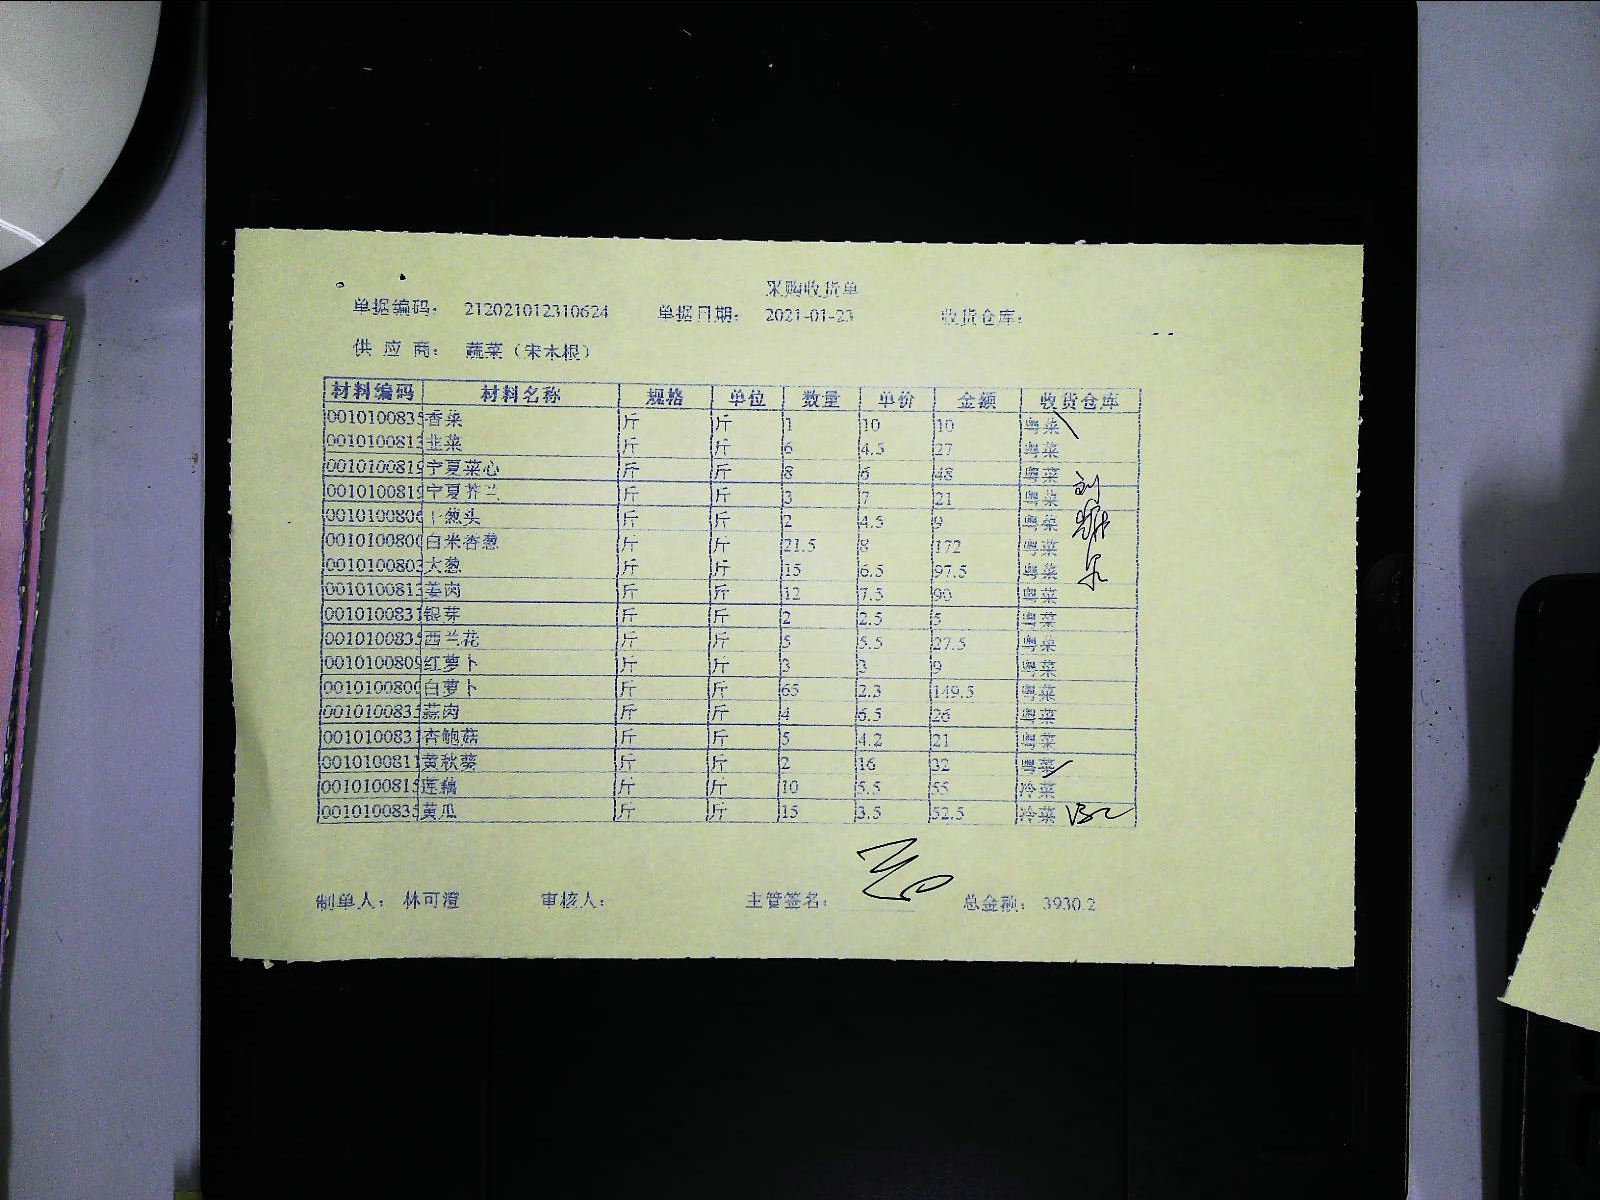 采购收货单
单据编码： 212021012310624 单据日期： 2021-01-23 收货仓库：
供 应 商： 蔬菜（宋木根）
材料编码 材料名称 规格 单位 数量 单价 金额 收货仓库
0010100835 香菜 斤 斤 1 10 10 粤菜
0010100813 韭菜 斤 斤 6 4.5 27 粤菜
0010100819 宁夏菜心 斤 斤 8 6 48 粤菜
0010100819 宁夏芥兰 斤 斤 3 7 21 粤菜
0010100806 干葱头 斤 斤 2 4.5 9 粤菜
0010100800 白米香葱 斤 斤 21.5 8 172 粤菜
0010100803 大葱 斤 斤 15 6.5 97.5 粤菜
0010100813 姜肉 斤 斤 12 7.5 90 粤菜
0010100831 银芽 斤 斤 2 2.5 5 粤菜
0010100835 西兰花 斤 斤 5 5.5 27.5 粤菜
0010100809 红萝卜 斤 斤 3 3 9 粤菜
0010100800 白萝卜 斤 斤 65 2.3 149.5 粤菜
0010100835 蒜肉 斤 斤 4 6.5 26 粤菜
0010100831 杏鲍菇 斤 斤 5 4.2 21 粤菜
0010100811 黄秋葵 斤 斤 2 16 32 粤菜
0010100815 莲藕 斤 斤 10 5.5 55 冷菜
0010100835 黄瓜 斤 斤 15 3.5 52.5 冷菜
制单人： 林可澄 审核人： 主管签名： 总金额： 3930.2